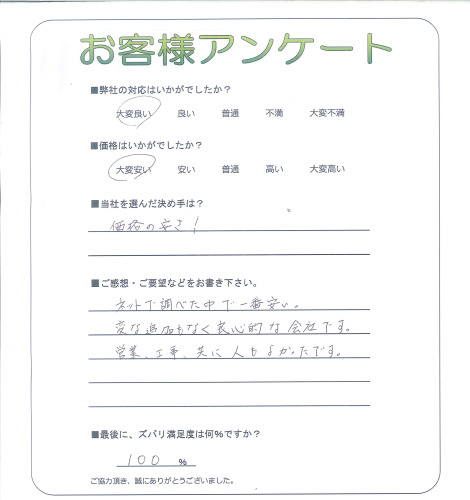 お客様アンケート
■弊社の対応はいかがでしたか？
大変良い 良い 普通 不満 大変不満
■価格はいかがでしたか？
大変安い 安い 普通 高い 大変高い
■当社を選んだ決め手は？
価格の安さ！
■ご感想・ご要望などをお書き下さい。
ネットで調べた中で一番安い。
変な追加もなく良心的な会社です。
営業、工事、共に人もよかったです。
■最後に、ズバリ満足度は何%ですか？
100 %
ご協力頂き、誠にありがとうございました。